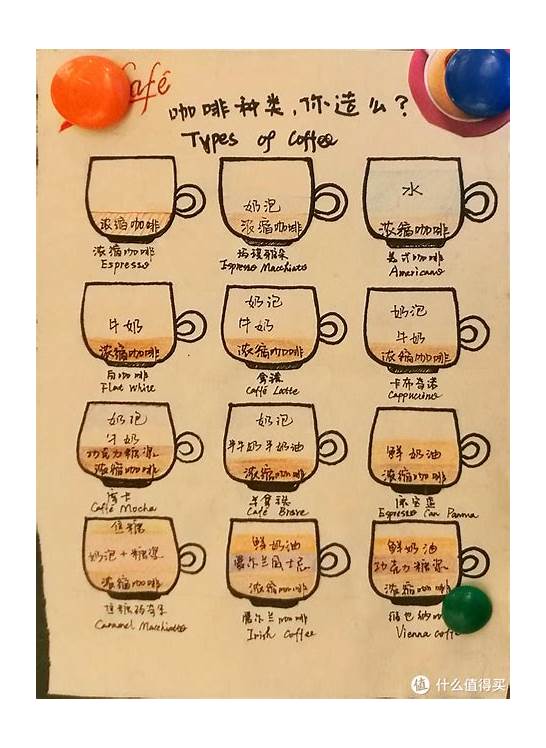 Café
咖啡种类,你造么?
Types of Coffee
浓缩咖啡
浓缩咖啡
Espresso
奶泡
浓缩咖啡
玛琪雅朵
Espresso Macchiato
水
浓缩咖啡
美式咖啡
Americano
牛奶
浓缩咖啡
白咖啡
Flat White
奶泡
牛奶
浓缩咖啡
拿铁
Caffé Latte
奶泡
牛奶
浓缩咖啡
卡布奇诺
Cappuccino
奶泡
牛奶
巧克力糖浆
浓缩咖啡
摩卡
Caffé Mocha
奶泡
牛奶半奶油
浓缩咖啡
半拿铁
Café Breve
鲜奶油
浓缩咖啡
康宝蓝
Espresso Con Panna
焦糖
奶泡+糖浆
浓缩咖啡
焦糖玛奇朵
Caramel Macchiato
鲜奶油
爱尔兰威士忌
浓缩咖啡
爱尔兰咖啡
Irish Coffee
鲜奶油
巧克力糖浆
浓缩咖啡
维也纳
Vienna coff
值 什么值得买